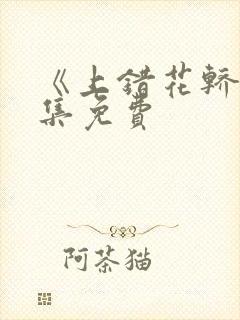 《上错花轿
集免费
阿茶猫